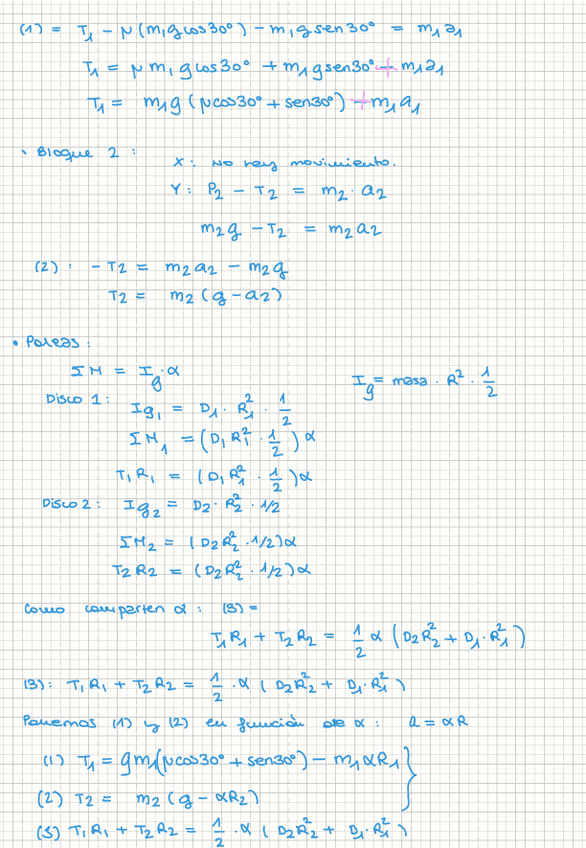 (1) = T₁ - μ(m₁gcos30°) - m₁gsen30° = m₁a₁
T₁ = μm₁gcos30° + m₁gsen30° + m₁a₁
T₁ = m₁g(μcos30° + sen30°) + m₁a₁
• Bloque 2 :
X: No hay movimiento.
Y: P₂ - T₂ = m₂ · a₂
m₂g - T₂ = m₂a₂
(2) : -T₂ = m₂a₂ - m₂g
T₂ = m₂(g-a₂)
• Poleas :
ΣM = I_g · α
I_g = masa · R² · 1/2
Disco 1: Ig₁ = D₁ · R₁² · 1/2
ΣM₁ = (D₁R₁² · 1/2)α
T₁R₁ = (D₁R₁² · 1/2)α
Disco 2: Ig₂ = D₂ · R₂² · 1/2
ΣM₂ = (D₂R₂² · 1/2)α
T₂R₂ = (D₂R₂² · 1/2)α
Como comparten α : (3) =
T₁R₁ + T₂R₂ = 1/2 α (D₂R₂² + D₁·R₁²)
(3): T₁R₁ + T₂R₂ = 1/2 · α (D₂R₂² + D₁·R₁²)
Ponemos (1) y (2) en función de α : a = αR
(1) T₁ = gm₁(μcos30° + sen30°) - m₁αR₁
(2) T₂ = m₂(g - αR₂)
(3) T₁R₁ + T₂R₂ = 1/2 · α (D₂R₂² + D₁·R₁²)